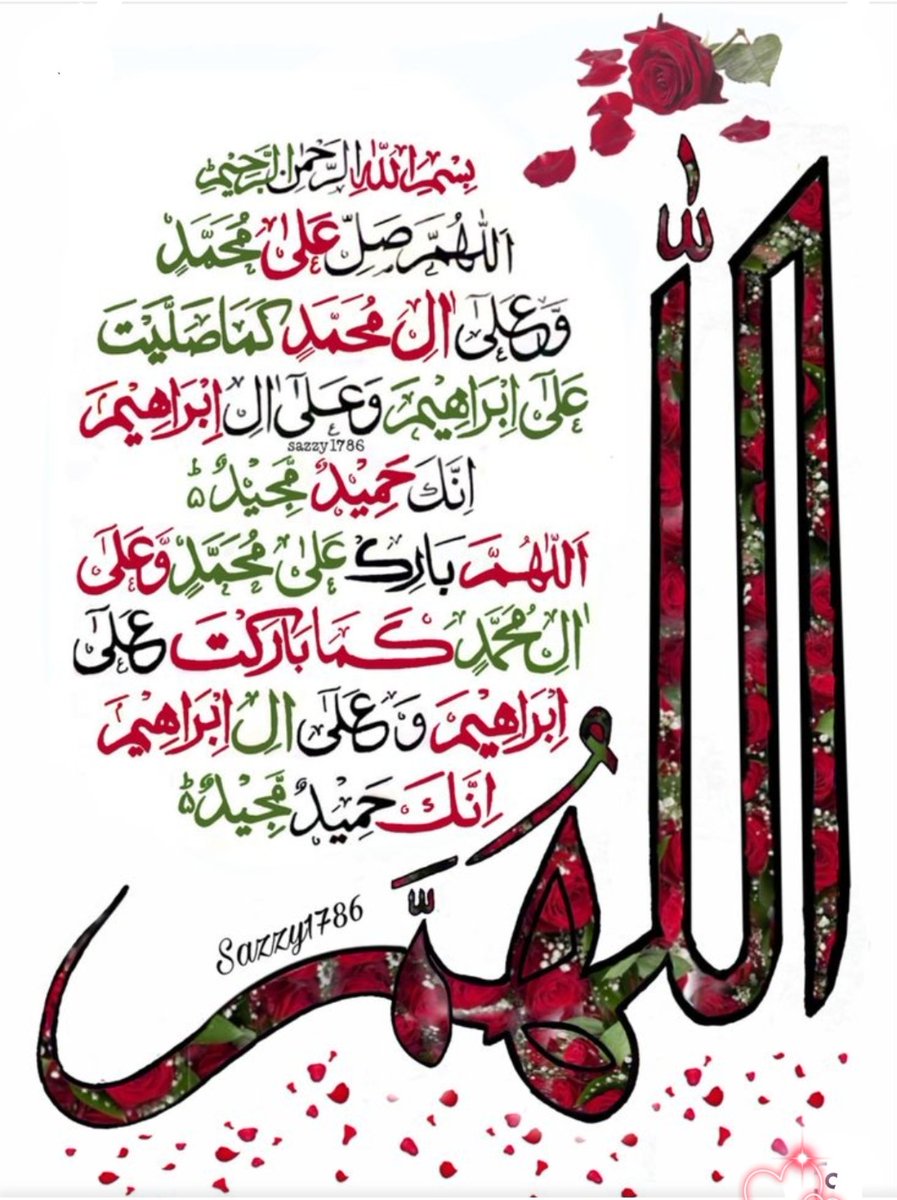 بِسْمِ اللهِ الرَّحْمٰنِ الرَّحِيْمِ
اَللّٰهُمَّ صَلِّ عَلٰى مُحَمَّدٍ
وَّعَلٰٓى اٰلِ مُحَمَّدٍ كَمَا صَلَّيْتَ
عَلٰٓى اِبْرَاهِيْمَ وَعَلٰٓى اٰلِ اِبْرَاهِيْمَ
sazzy1786
اِنَّكَ حَمِيْدٌ مَّجِيْدٌ
اَللّٰهُمَّ بَارِكْ عَلٰى مُحَمَّدٍ وَّعَلٰٓى
اٰلِ مُحَمَّدٍ كَمَا بَارَكْتَ عَلٰٓى
اِبْرَاهِيْمَ وَعَلٰٓى اٰلِ اِبْرَاهِيْمَ
اِنَّكَ حَمِيْدٌ مَّجِيْدٌ
اللّٰهُمَّ
Sazzy1786